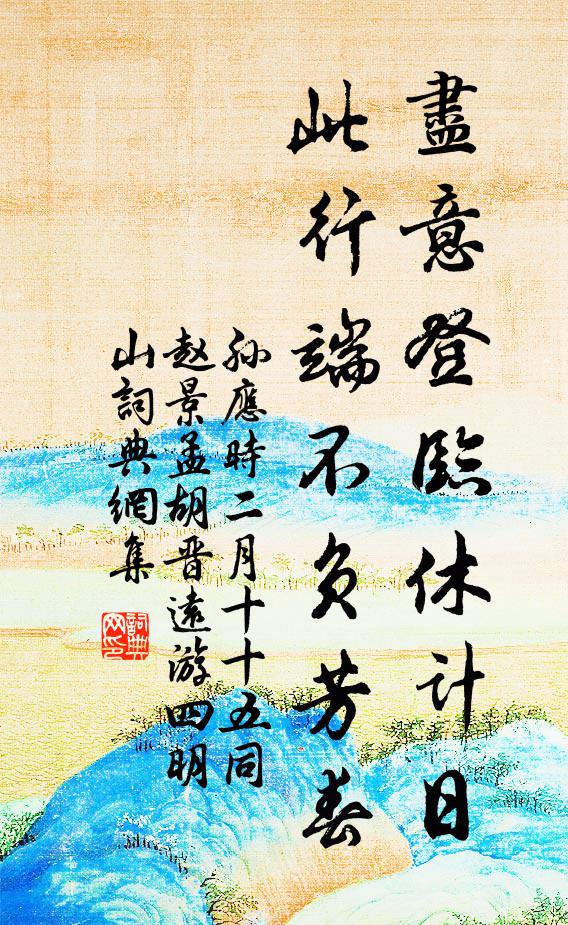 盡意登臨休計日
此行端不負芳春
孫應時二月十十五同
赵景孟胡晋遠游四明
山詞典網集
詞典網印